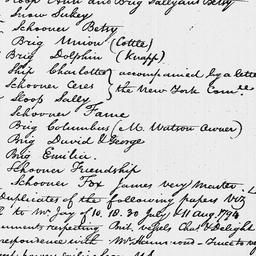 Sloop Ann and Brig Sallyann Betsy
Snow Sukey
Schooner Betsy
Brig Union (Cottle)
Brig Dolphin (Knapp)
Ship Charlotte } accompanied by a lette
Schooner Ceres } the New York Com.ee
Sloop Sally
Schooner Fame
Brig Columbus (M. Watson owner)
Brig David & George
Brig Emilia.
Schooner Friendship
Schooner Fox James very Master. L
Duplicates of the following papers Viz
to Mr Jay of 10. 18. 30 July & 11 Augt 1794
uments respecting Brit. Vessels Chas & Delight
respondence with Mr Hammond